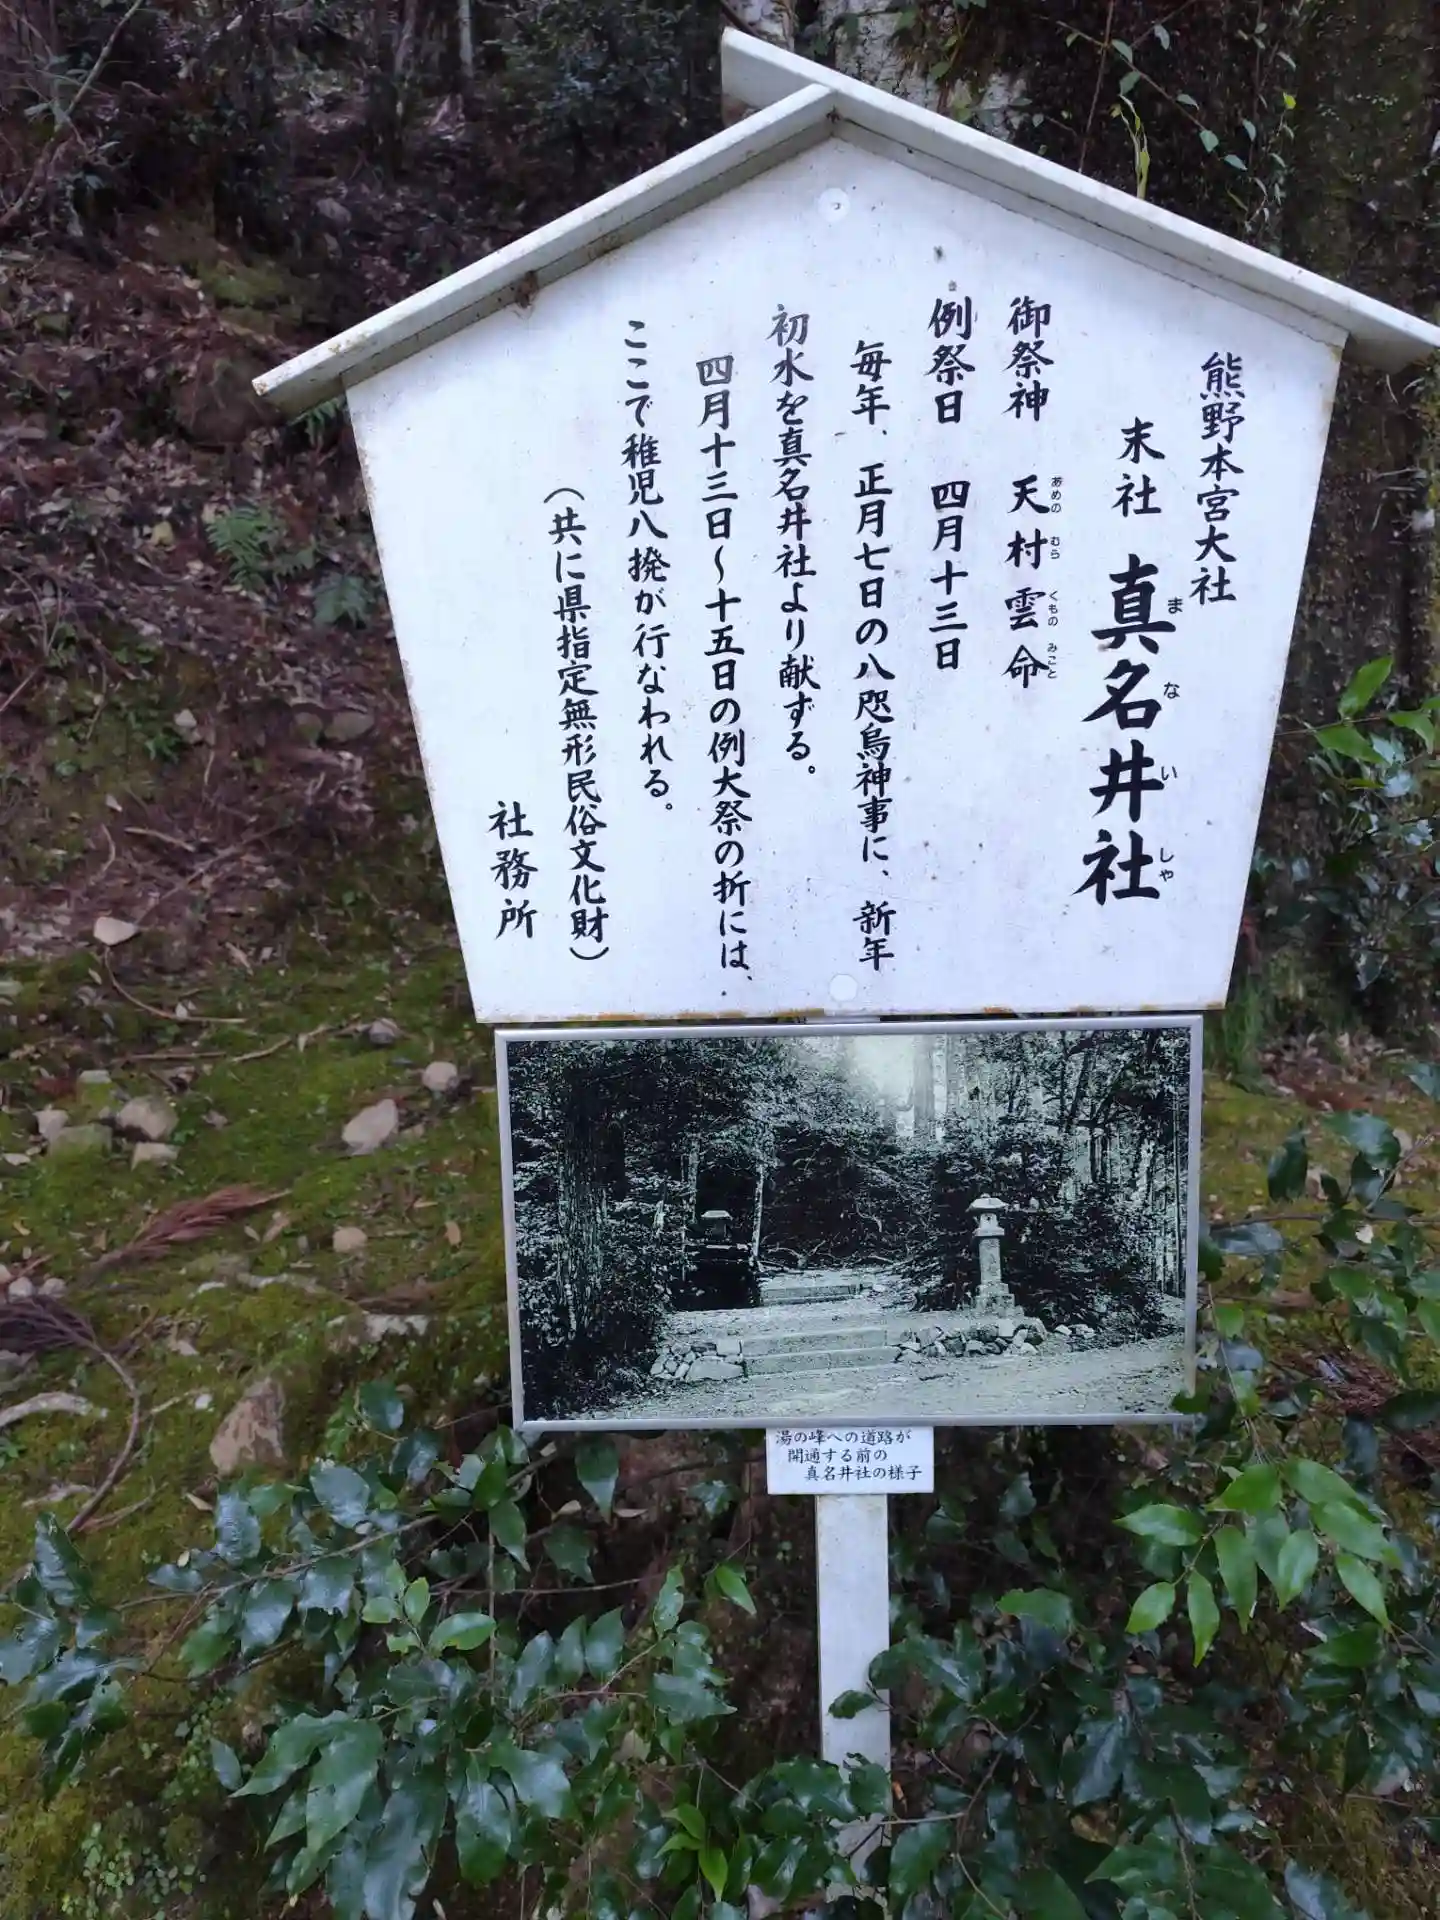 熊野本宮大社
末社 真名井社
ま な い しや
御祭神 天村雲命
あめの むら くもの みこと
例祭日 四月十三日
毎年、正月七日の八咫烏神事に、新年
初水を真名井社より献ずる。
四月十三日〜十五日の例大祭の折には、
ここで稚児八撥が行なわれる。
（共に県指定無形民俗文化財）
社務所
湯の峰への道路が
開通する前の
真名井社の様子